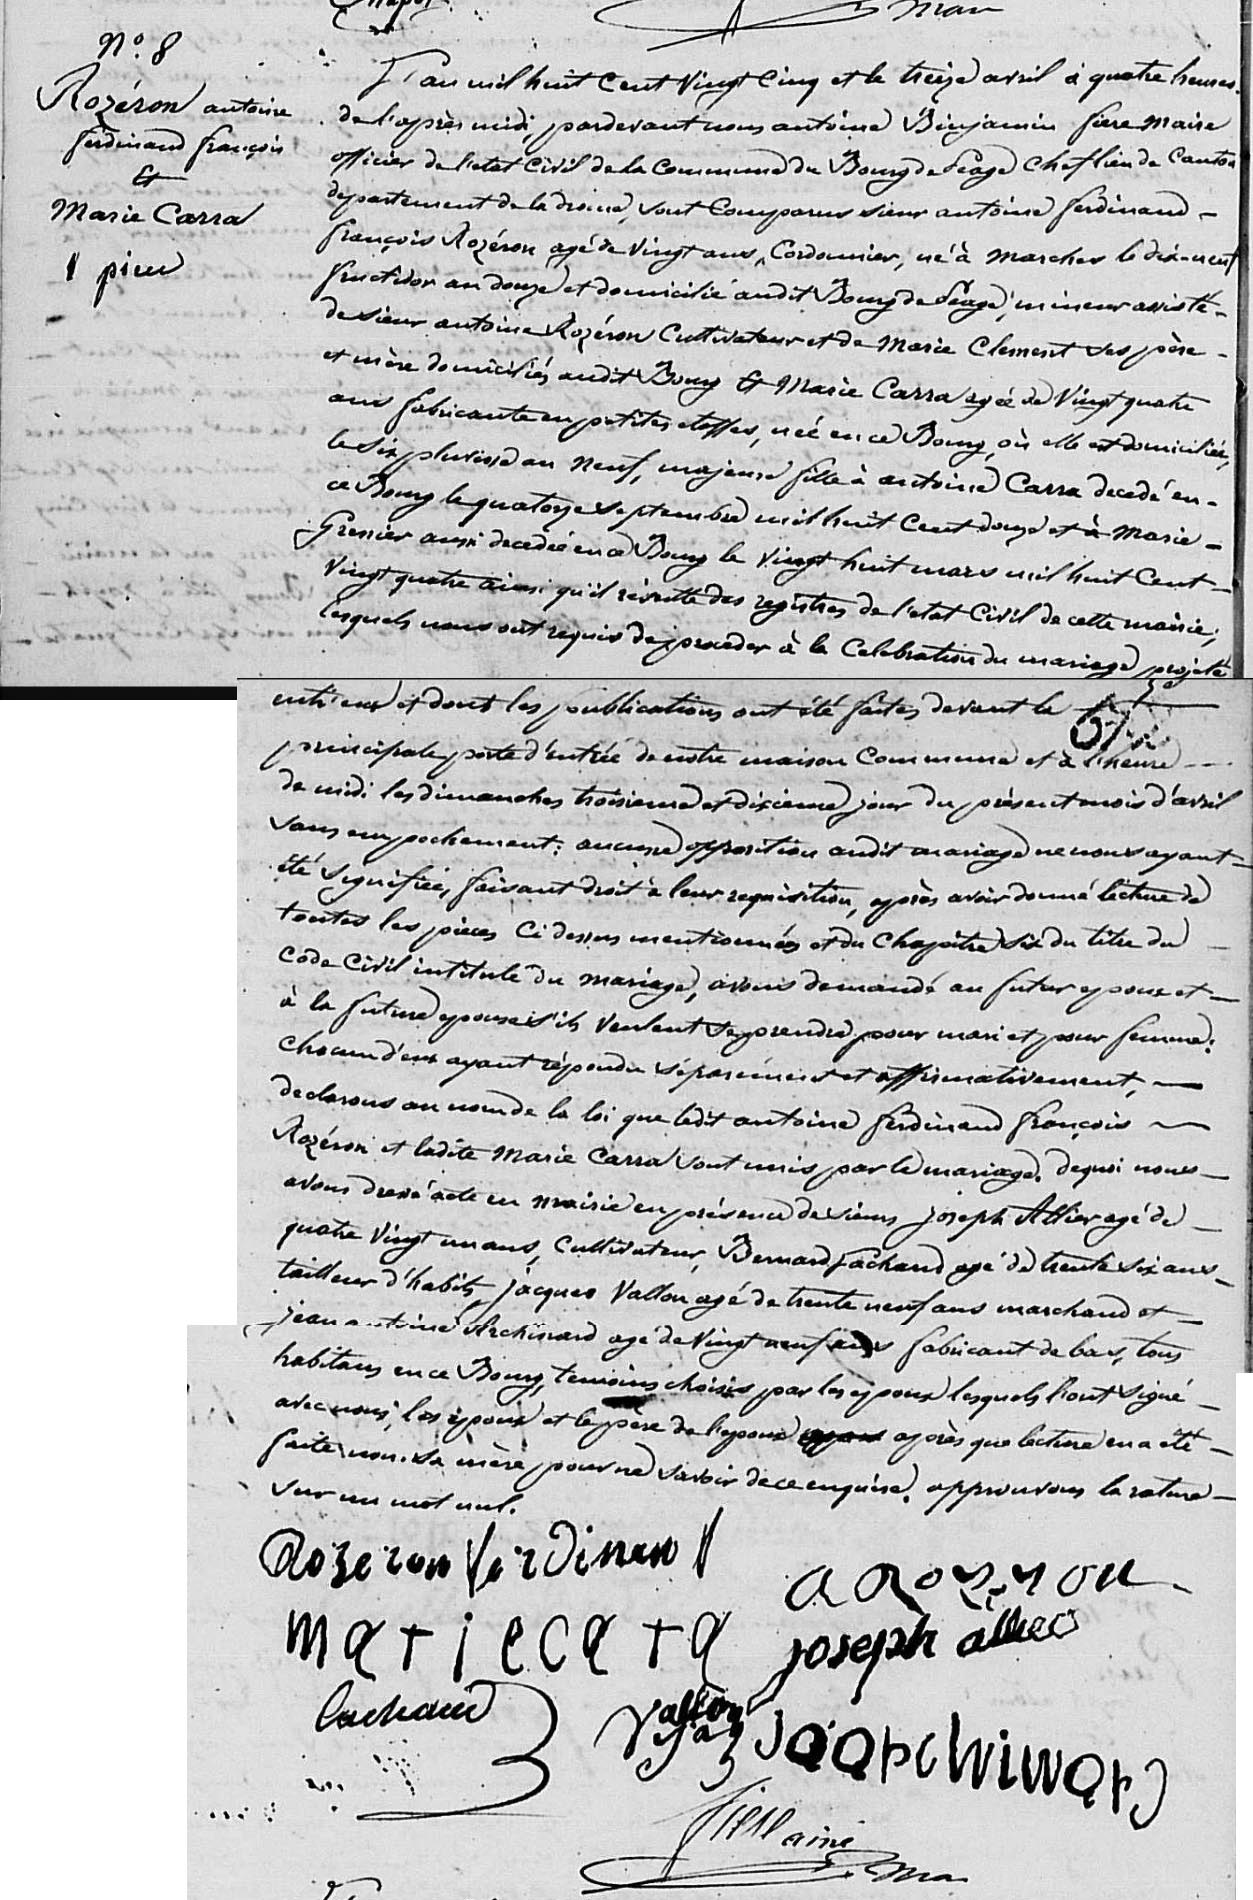 N.º 8
Rozéron antoine
ferdinand françois
Et
Marie Carra
1 piece
L'an mil huit Cent Vingt Cinq et le treize avril à quatre heures
de l'après midi, pardevant nous antoine Binjamin fiere maire
officier de l'etat Civil de la Commune du Bourg de Péage Chef lieu de Canton
departement de la drome, sont Comparus sieur antoine ferdinand -
françois Rozéron agé de Vingt ans, Cordonnier, né à marches le dix-neuf
fructidor an douze et domicilié audit Bourg de Péage, mineur assisté -
de sieur antoine Rozéron Cultivateur et de Marie Clement ses père -
et mère domiciliés audit Bourg Et Marie Carra agée de Vingt quatre
ans fabricante en petites etoffes, née en ce Bourg, où elle est domiciliée,
le six pluviose an neuf, majeure fille à antoine Carra decedé en -
ce Bourg le quatorze septembre mil huit Cent douze et à Marie -
Grenier aussi decedée en ce Bourg le Vingt huit mars mil huit Cent -
Vingt quatre ainsi qu'il résulte des registres de l'etat Civil de cette mairie;
lesquels nous ont requis de proceder à la Celebration du mariage projeté
entr'eux et dont les publications ont été faites devant la
principale porte d'entrée de notre maison Commune et à l'heure -
de midi les dimanches troisieme et dixieme jour du présent mois d'avril
sans empechement; aucune opposition audit mariage ne nous ayant -
été signifiée, faisant droit à leur requisition, après avoir donné lecture de
toutes les pièces Ci dessus mentionnées et du Chapitre six du titre du -
Code Civil intitulé du mariage, avons demandé au futur epoux et -
à la future epouse s'ils veulent se prendre pour mari et pour femme:
Chacun d'eux ayant répondu séparément et affirmativement, -
declarons au nom de la loi que ledit antoine ferdinand françois -
Rozéron et ladite Marie Carra sont unis par le mariage. dequoi nous -
avons dressé acte en mairie en présence de sieurs joseph Allier agé de -
quatre Vingt un ans, Cultivateur, Bernard Lachaud agé de trente six ans -
tailleur d'habits, jacques Vallon agé de trente neuf ans marchand et -
jean antoine Archinard agé de Vingt neuf ans fabricant de bas, tous
habitans en ce Bourg, temoins choisis par les epoux lesquels l'ont signé -
avec nous, les epoux et le père de l'epoux après que lecture en a été -
faite, non sa mère pour ne savoir de ce enquise. approuvons la rature -
sur un mot nul.
Rozeron ferdinand
a Rozeron
mariecara
joseph allier
Lachaud
Vallon
JAArchiward
fiere ainé
Mre